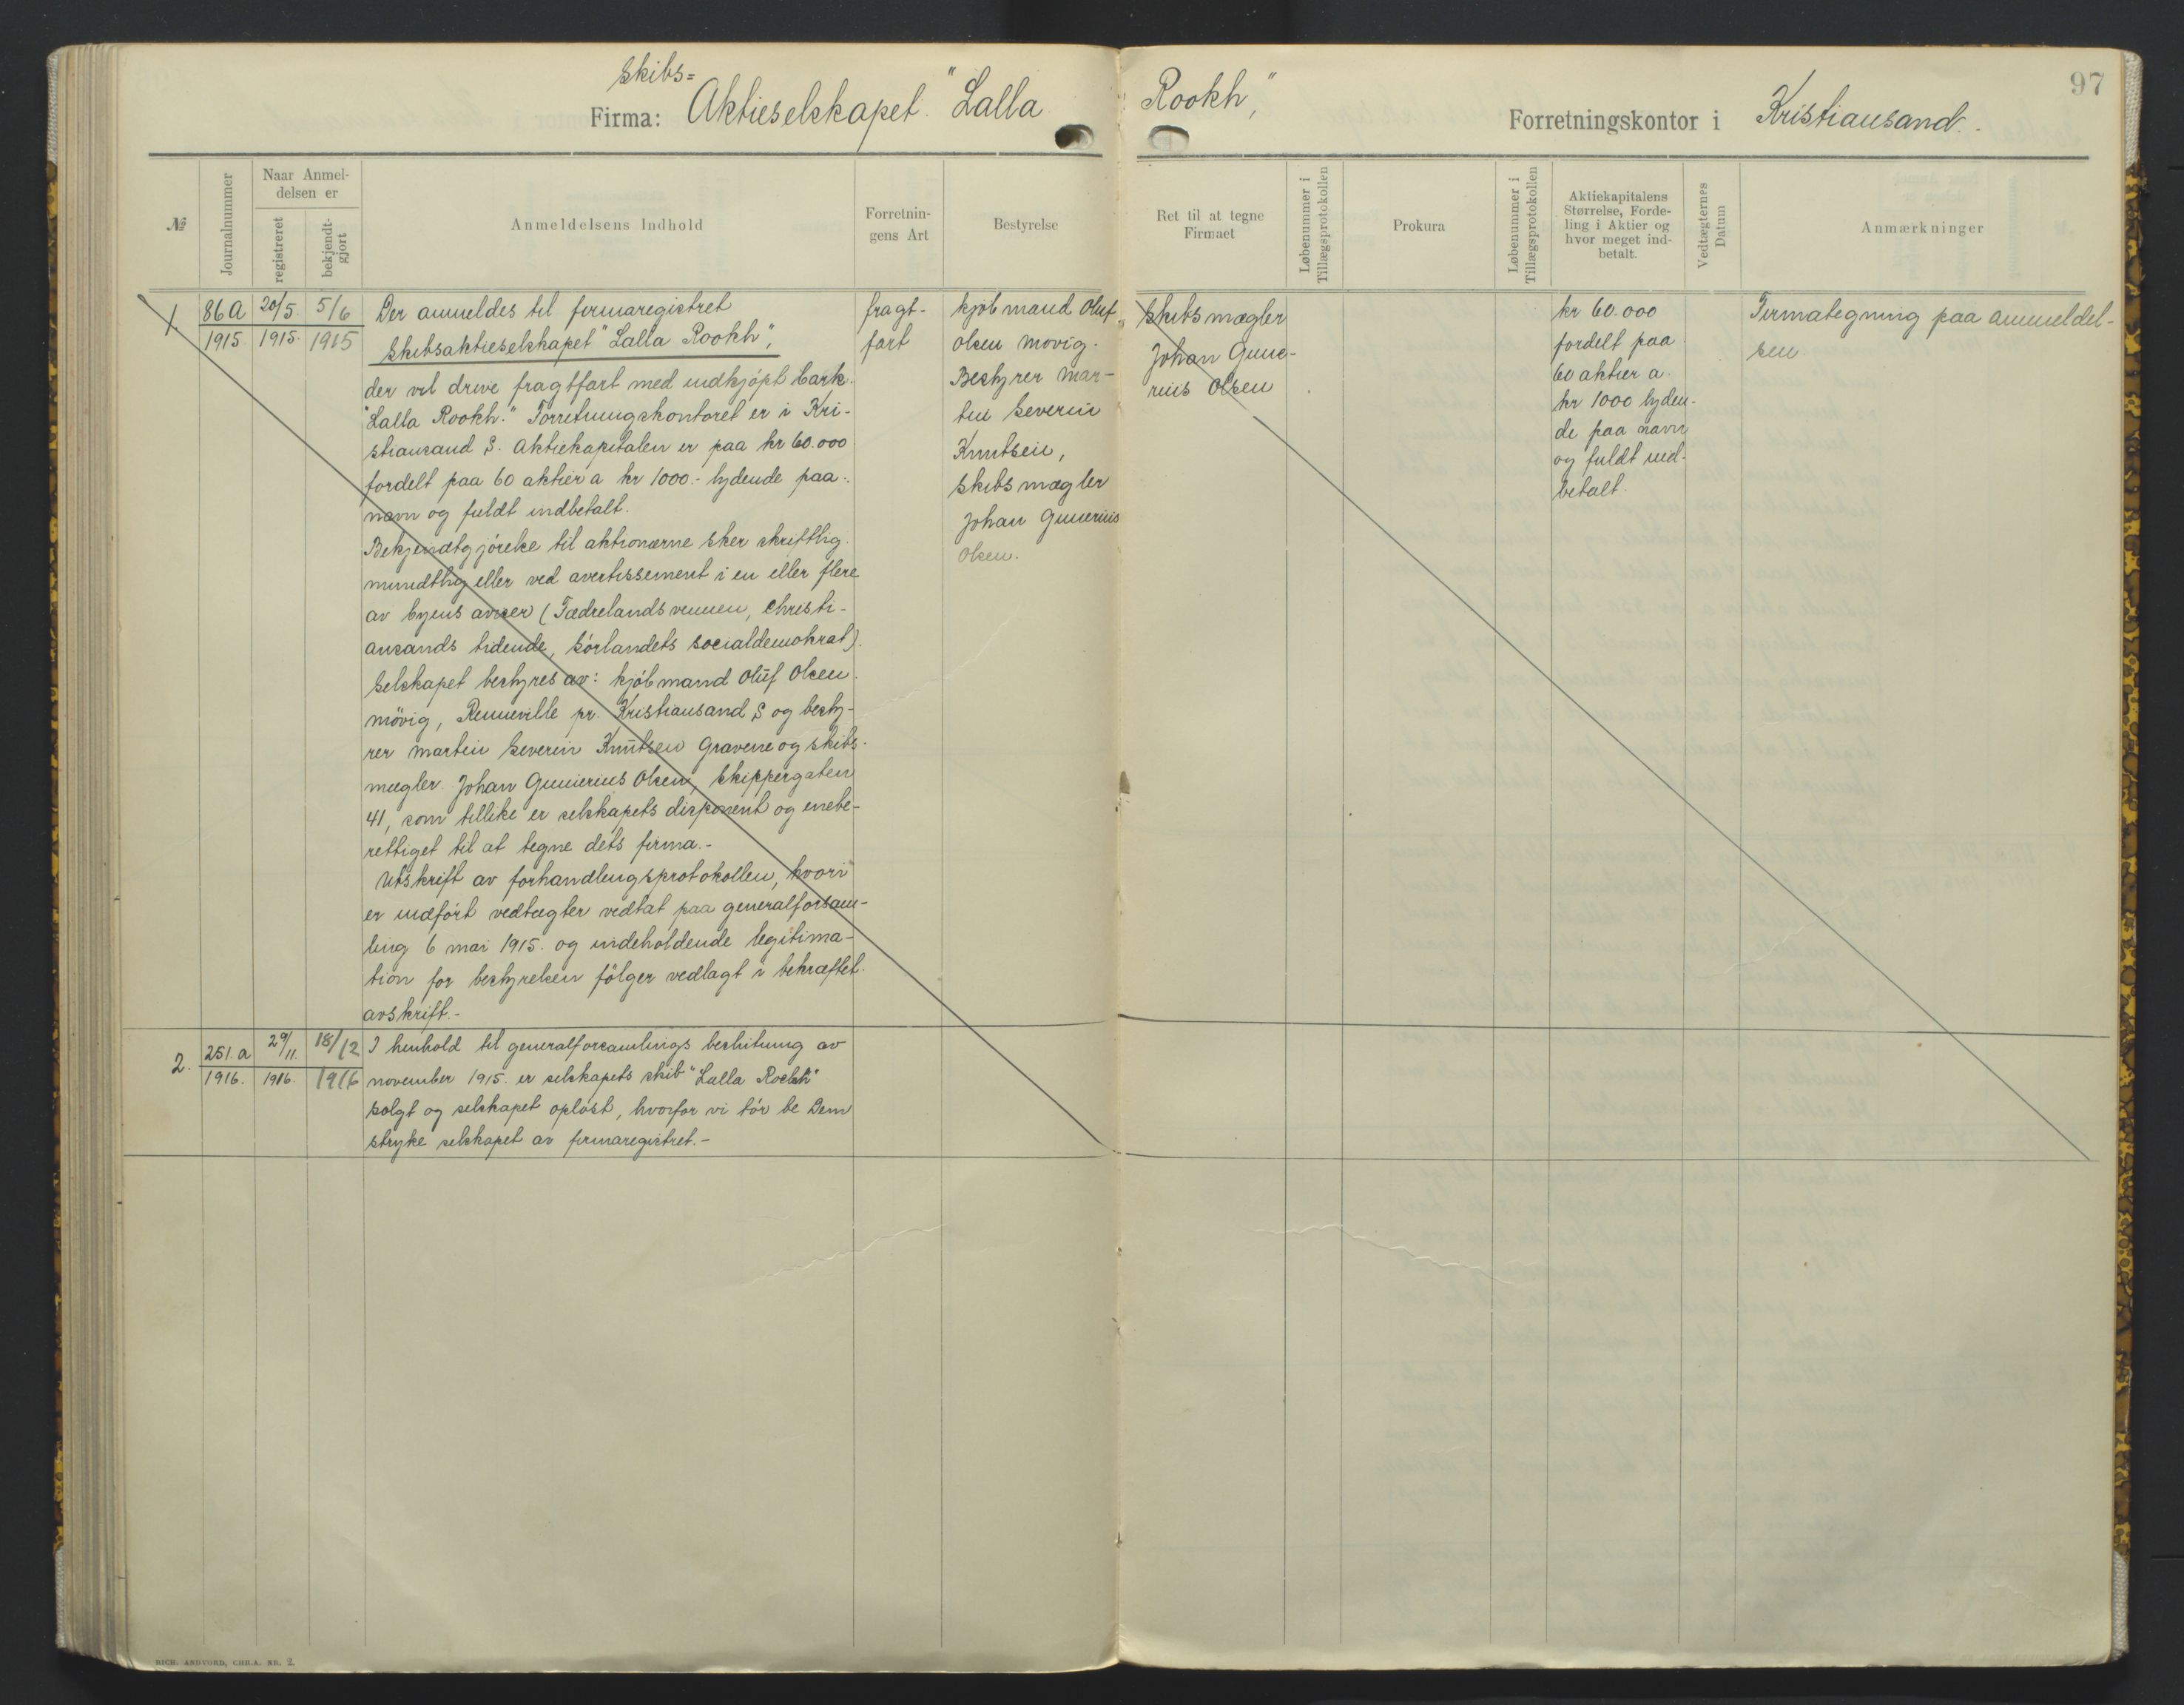 97
Skibs=
Firma: Aktieselskapet "Lalla Rookh",
Forretningskontor i Kristiansand.
№
Journalnummer
Naar Anmel-
delsen er
registreret
bekjendt-
gjort
Anmeldelsens Indhold
Forretnin-
gens Art
Bestyrelse
Ret til at tegne
Firmaet
Løbenummer i
Tillægsprotokollen
Prokura
Løbenummer i
Tillægsprotokollen
Aktiekapitalens
Størrelse, Forde-
ling i Aktier og
hvor meget ind-
betalt.
Vedtægternes
Datum
Anmærkninger
1.
86a
1915
20/5
1915
5/6
1915
Der anmeldes til firmaregistret
Skibsaktieselskapet "Lalla Rookh",
der vil drive fragtfart med indkjøpt bark
"Lalla Rookh." Forretningskontoret er i Kri-
stiansand S. Aktiekapitalen er paa kr 60.000
fordelt paa 60 aktier a kr 1000.- lydende paa
navn og fuldt indbetalt.
Bekjendtgjörelse til aktionærne sker skriftlig
mundtlig eller ved avertissement i en eller flere
av byens aviser (Fædrelandsvennen, Christi-
ansands tidende, Sörlandets socialdemokrat).
Selskapet bestyres av: kjöbmand Oluf Olsen
mövig, Renneville pr. Kristiansand S og besty-
rer martin Severin Knutsen Gravene og skibs-
mægler Johan Gunerius Olsen, Skippergaten
41, som tillike er selskapets disponent og enebe-
rettiget til at tegne dets firma.-
Utskrift av forhandlingsprotokollen, hvori
er indført vedtægter vedtat paa generalforsam-
ling 6 mai 1915. og indeholdende legitima-
tion for bestyrelsen fölger vedlagt i bekræftet
avskrift.-
fragt-
fart
kjöbmand Oluf
Olsen movig.
Bestyrer Mar-
tin Severin
Knutsen,
skibsmægler
Johan Gunerius
Olsen.
Skibsmægler
Johan Gune-
rius Olsen
kr 60.000
fordelt paa
60 aktier a
kr 1000 lyden-
de paa navn
og fuldt ind-
betalt.
Firmategning paa anmeldel-
sen
2.
251.a
1916.
29/11.
1916.
18/12
1916
I henhold til generalforsamlings beslutning av
november 1915. er selskapets skib "Lalla Rookh"
solgt og selskapet oplöst, hvorfor vi tör be Dem
stryke selskapet av firmaregistret.-
RICH. ANDVORD, CHR.A. NR. 2.